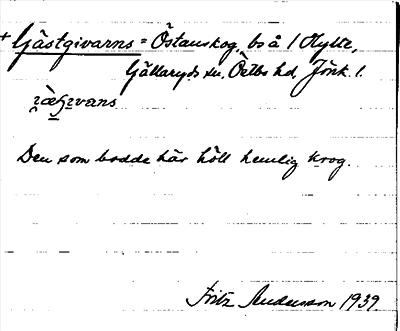 + Gästgivarns = Östanskog, bs å 1 Hylte,
Gällaryds sn, Östbo hd, Jönk. l.
Den som bodde här höll hemlig krog.
Fritz Andersson 1939.